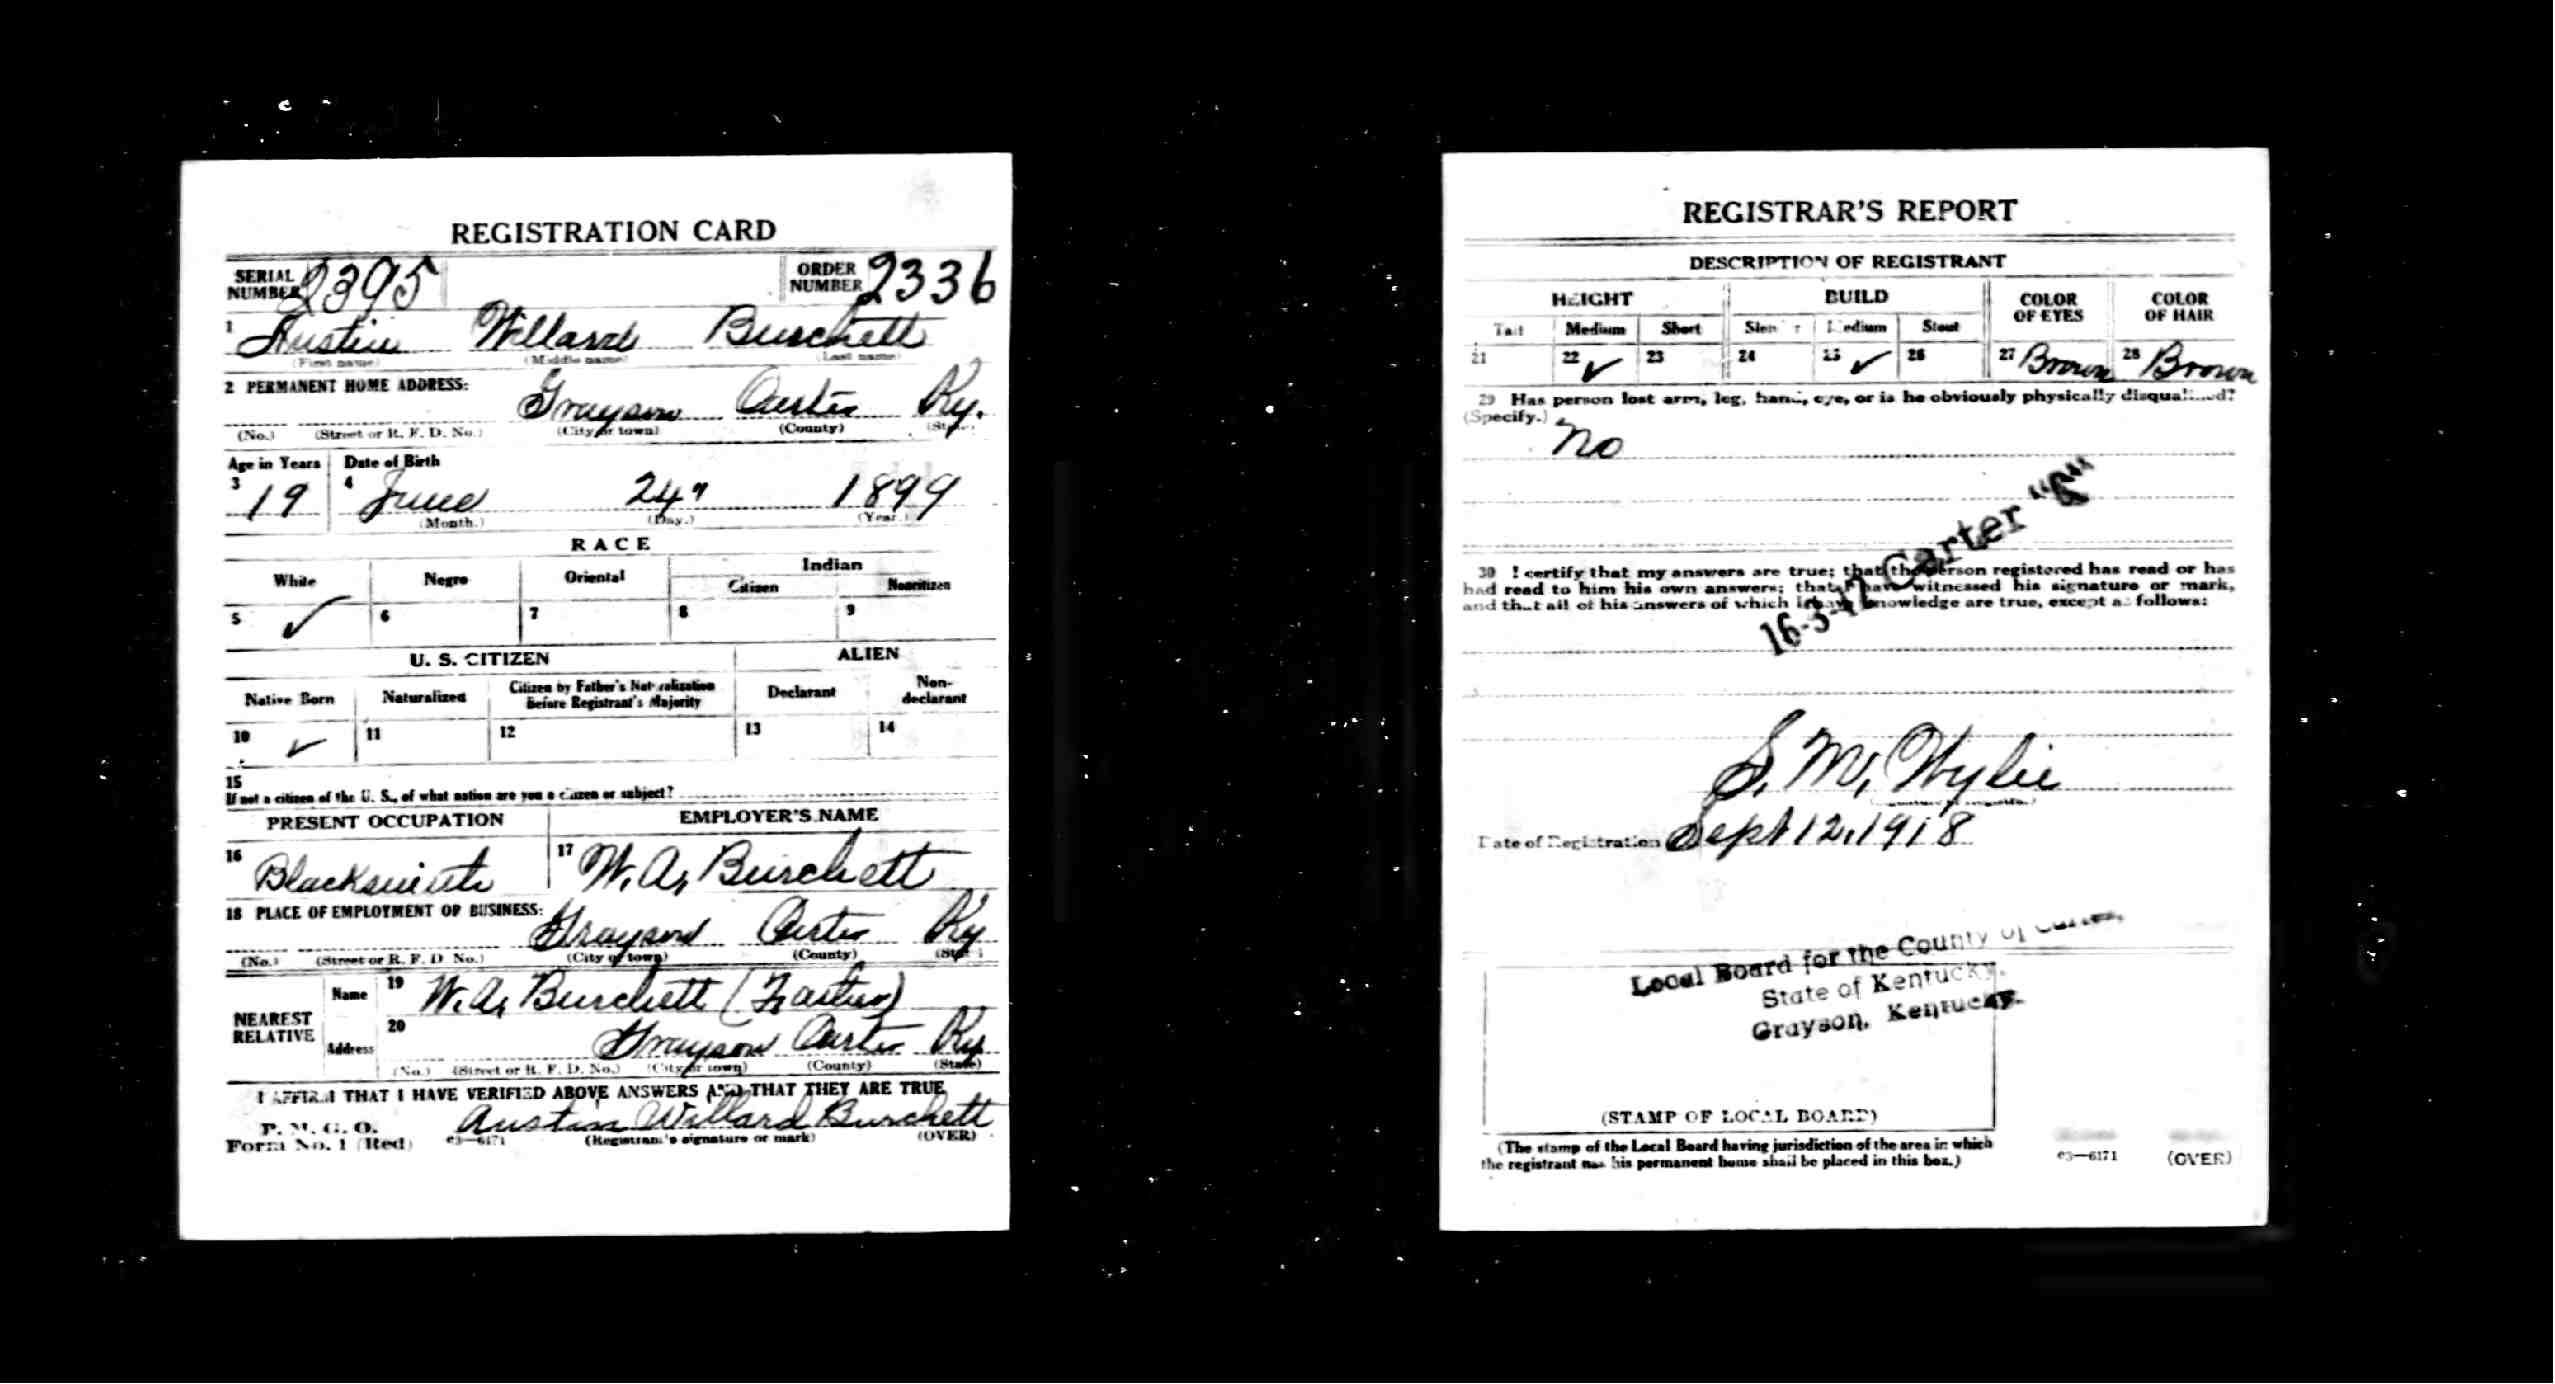 REGISTRATION CARD
SERIAL NUMBER 2395 ORDER NUMBER 2336
1 Austin Willard Burchett
(First name) (Middle name) (Last name)
2 PERMANENT HOME ADDRESS:
Grayson Carter Ky.
(No.) (Street or R. F. D. No.) (City or town) (County) (State)
Age in Years Date of Birth
3 19 4 June 24 1899
(Month.) (Day.) (Year.)
RACE
White Negro Oriental Indian
Citizen Noncitizen
5 ✓ 6 7 8 9
U. S. CITIZEN ALIEN
Native Born Naturalized Citizen by Father's Naturalization Before Registrant's Majority Declarant Non-declarant
10 ✓ 11 12 13 14
15
If not a citizen of the U. S., of what nation are you a citizen or subject?
PRESENT OCCUPATION EMPLOYER'S NAME
16 Blacksmith 17 W. A. Burchett
18 PLACE OF EMPLOYMENT OR BUSINESS:
Grayson Carter Ky
(No.) (Street or R. F. D. No.) (City or town) (County) (State)
NEAREST RELATIVE Name 19 W. A. Burchett (Father)
Address 20 Grayson Carter Ky
(No.) (Street or R. F. D. No.) (City or town) (County) (State)
I AFFIRM THAT I HAVE VERIFIED ABOVE ANSWERS AND THAT THEY ARE TRUE
P. M. G. O.
Form No. 1 (Red) 03—6171 Austin Willard Burchett
(Registrant's signature or mark) (OVER)
REGISTRAR'S REPORT
DESCRIPTION OF REGISTRANT
HEIGHT BUILD COLOR OF EYES COLOR OF HAIR
Tall Medium Short Slender Medium Stout
21 22 ✓ 23 24 25 ✓ 26 27 Brown 28 Brown
29 Has person lost arm, leg, hand, eye, or is he obviously physically disqualified?
(Specify.)
No
16-3-17 Carter "A"
30 I certify that my answers are true; that the person registered has read or has
had read to him his own answers; that I have witnessed his signature or mark,
and that all of his answers of which I have knowledge are true, except as follows:
S. M. Wylie
Date of Registration Sept 12, 1918
Local Board for the County of Carter,
State of Kentucky.
Grayson, Kentucky.
(STAMP OF LOCAL BOARD)
(The stamp of the Local Board having jurisdiction of the area in which
the registrant has his permanent home shall be placed in this box.)
03—6171 (OVER)